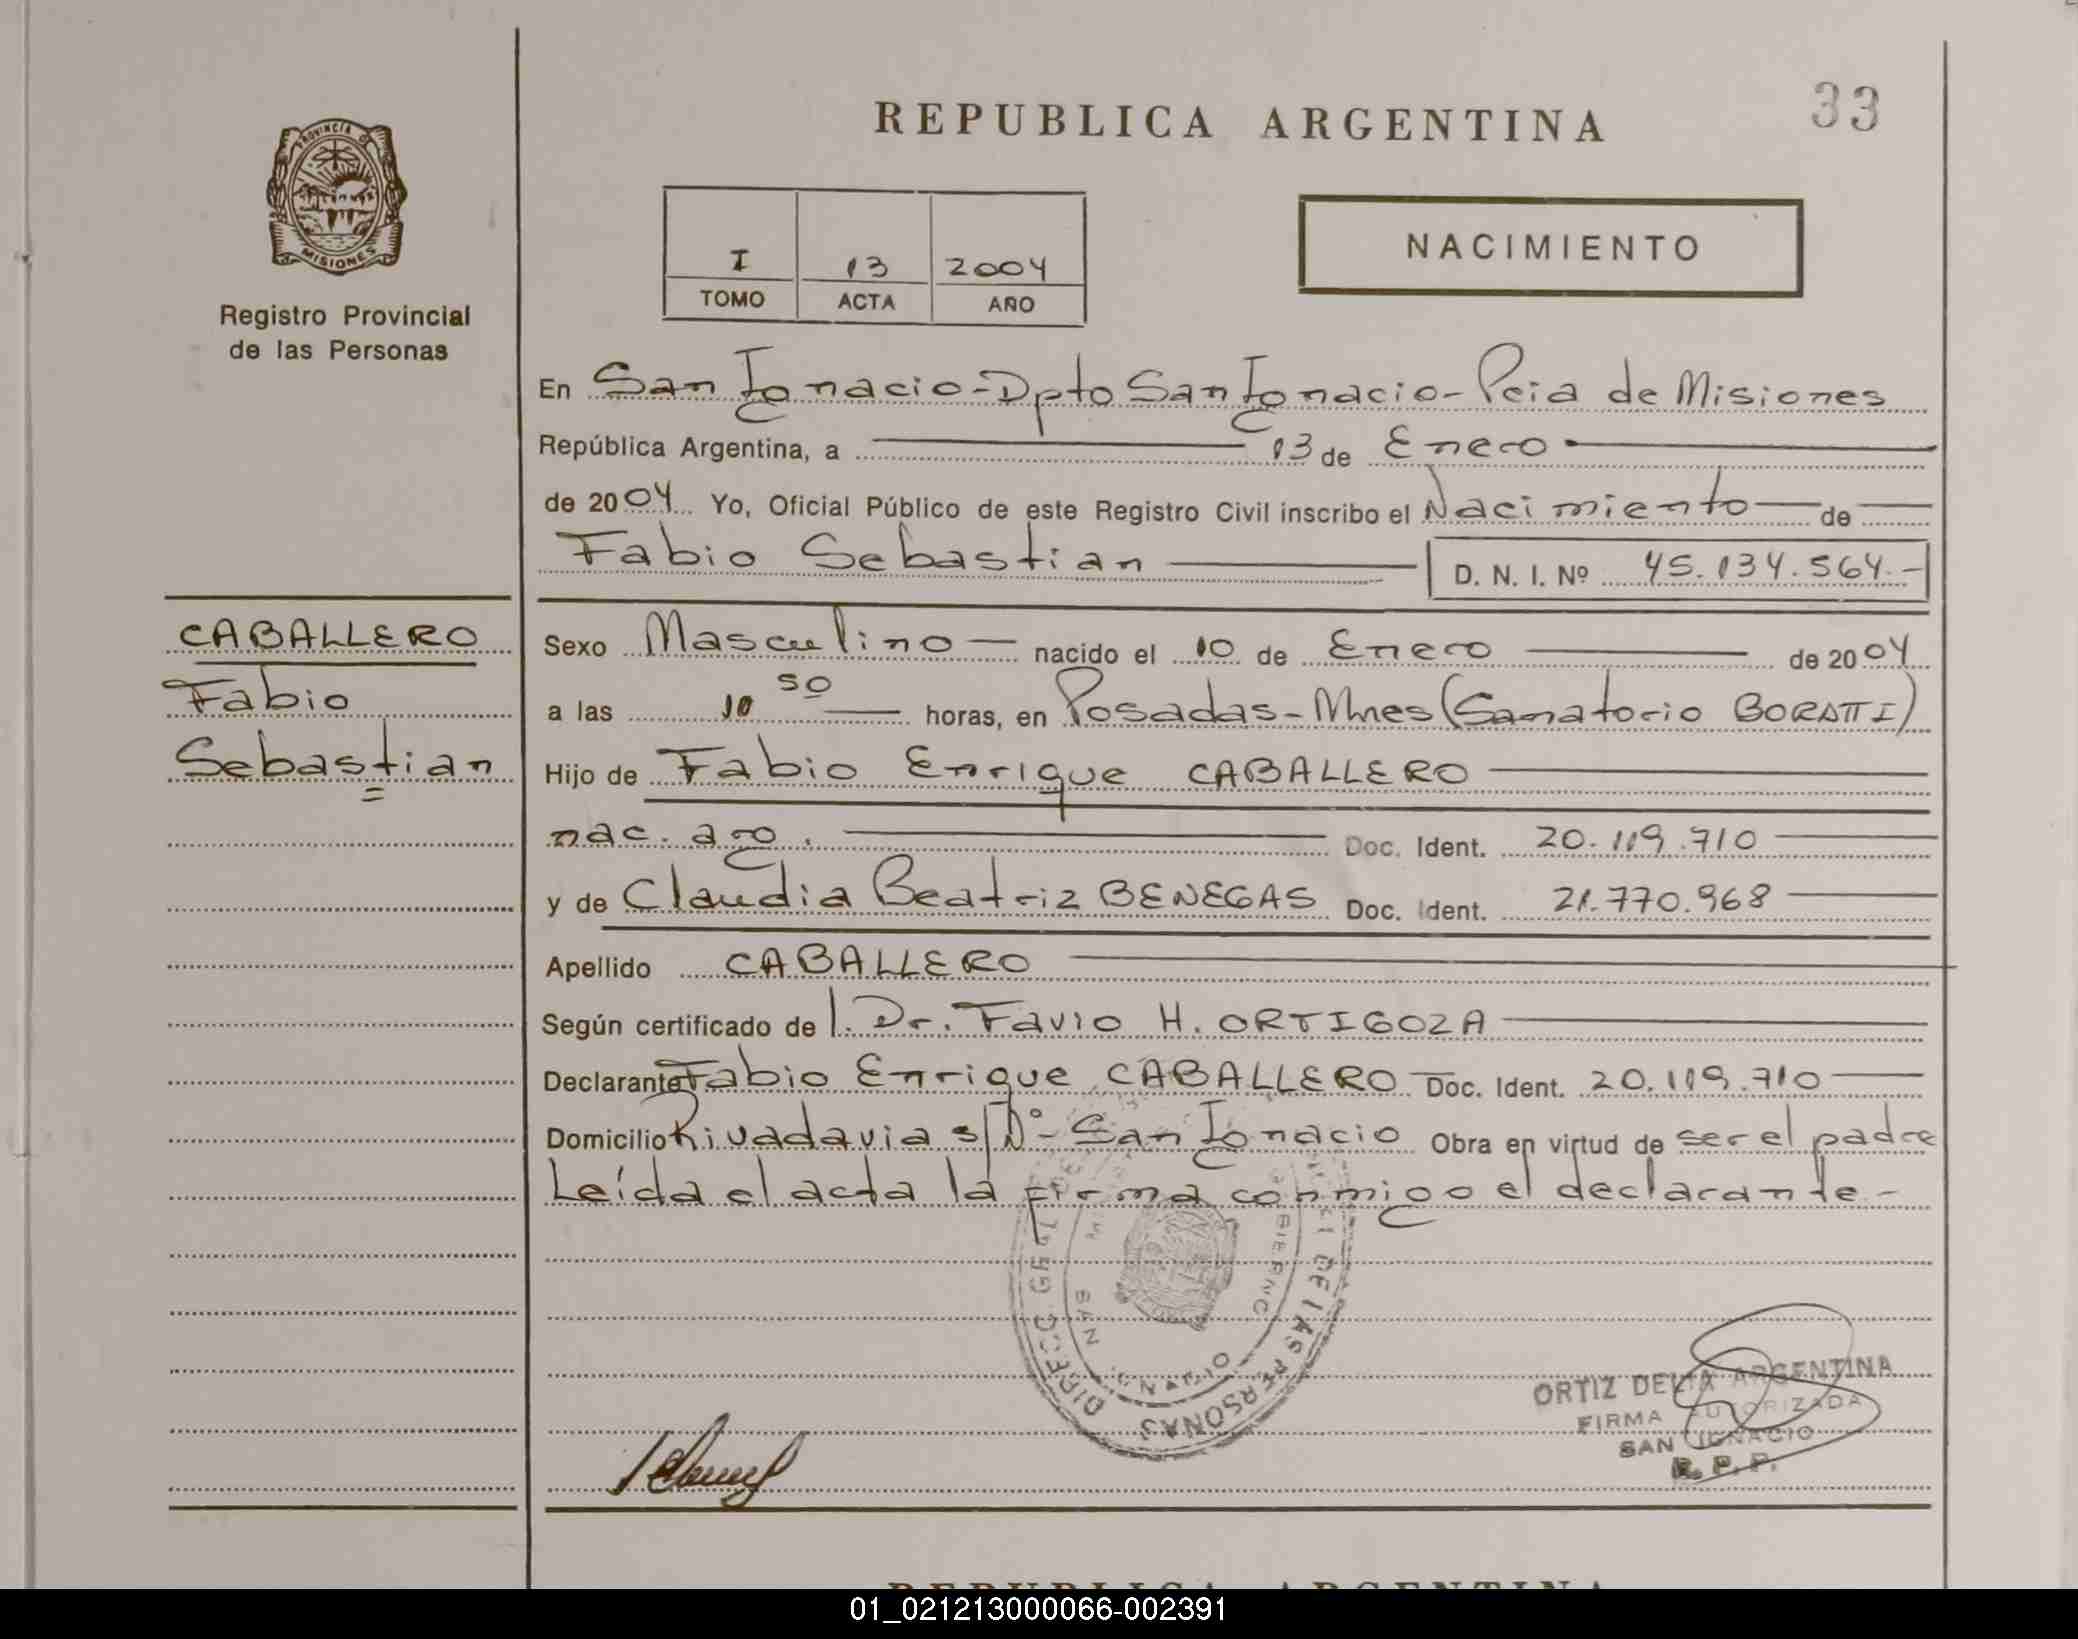 REPUBLICA ARGENTINA
33
PROVINCIA DE
MISIONES
Registro Provincial
de las Personas
I 13 2004
TOMO ACTA AÑO
NACIMIENTO
En San Ignacio-Dpto San Ignacio-Pcia de Misiones
República Argentina, a 13 de Enero
de 2004 Yo, Oficial Público de este Registro Civil inscribo el Nacimiento de
Fabio Sebastian D. N. I. Nº 45.134.564.-
CABALLERO
Fabio
Sebastian
Sexo Masculino nacido el 10 de Enero de 2004
a las 10 50 horas, en Posadas-Mnes (Sanatorio BORATTI)
Hijo de Fabio Enrique CABALLERO
nac. arg. Doc. Ident. 20.119.710
y de Claudia Beatriz BENEGAS Doc. Ident. 21.770.968
Apellido CABALLERO
Según certificado de l. Dr. Favio H. ORTIGOZA
Declarante Fabio Enrique CABALLERO Doc. Ident. 20.119.710
Domicilio Rivadavia s/Nº- San Ignacio Obra en virtud de ser el padre
Leída el acta la firma conmigo el declarante-
DE LAS PERSONAS
SAN
ORTIZ DELIA ARGENTINA
FIRMA AUTORIZADA
SAN IGNACIO
R. P. P.
REPUBLICA ARGENTINA
01_021213000066-002391